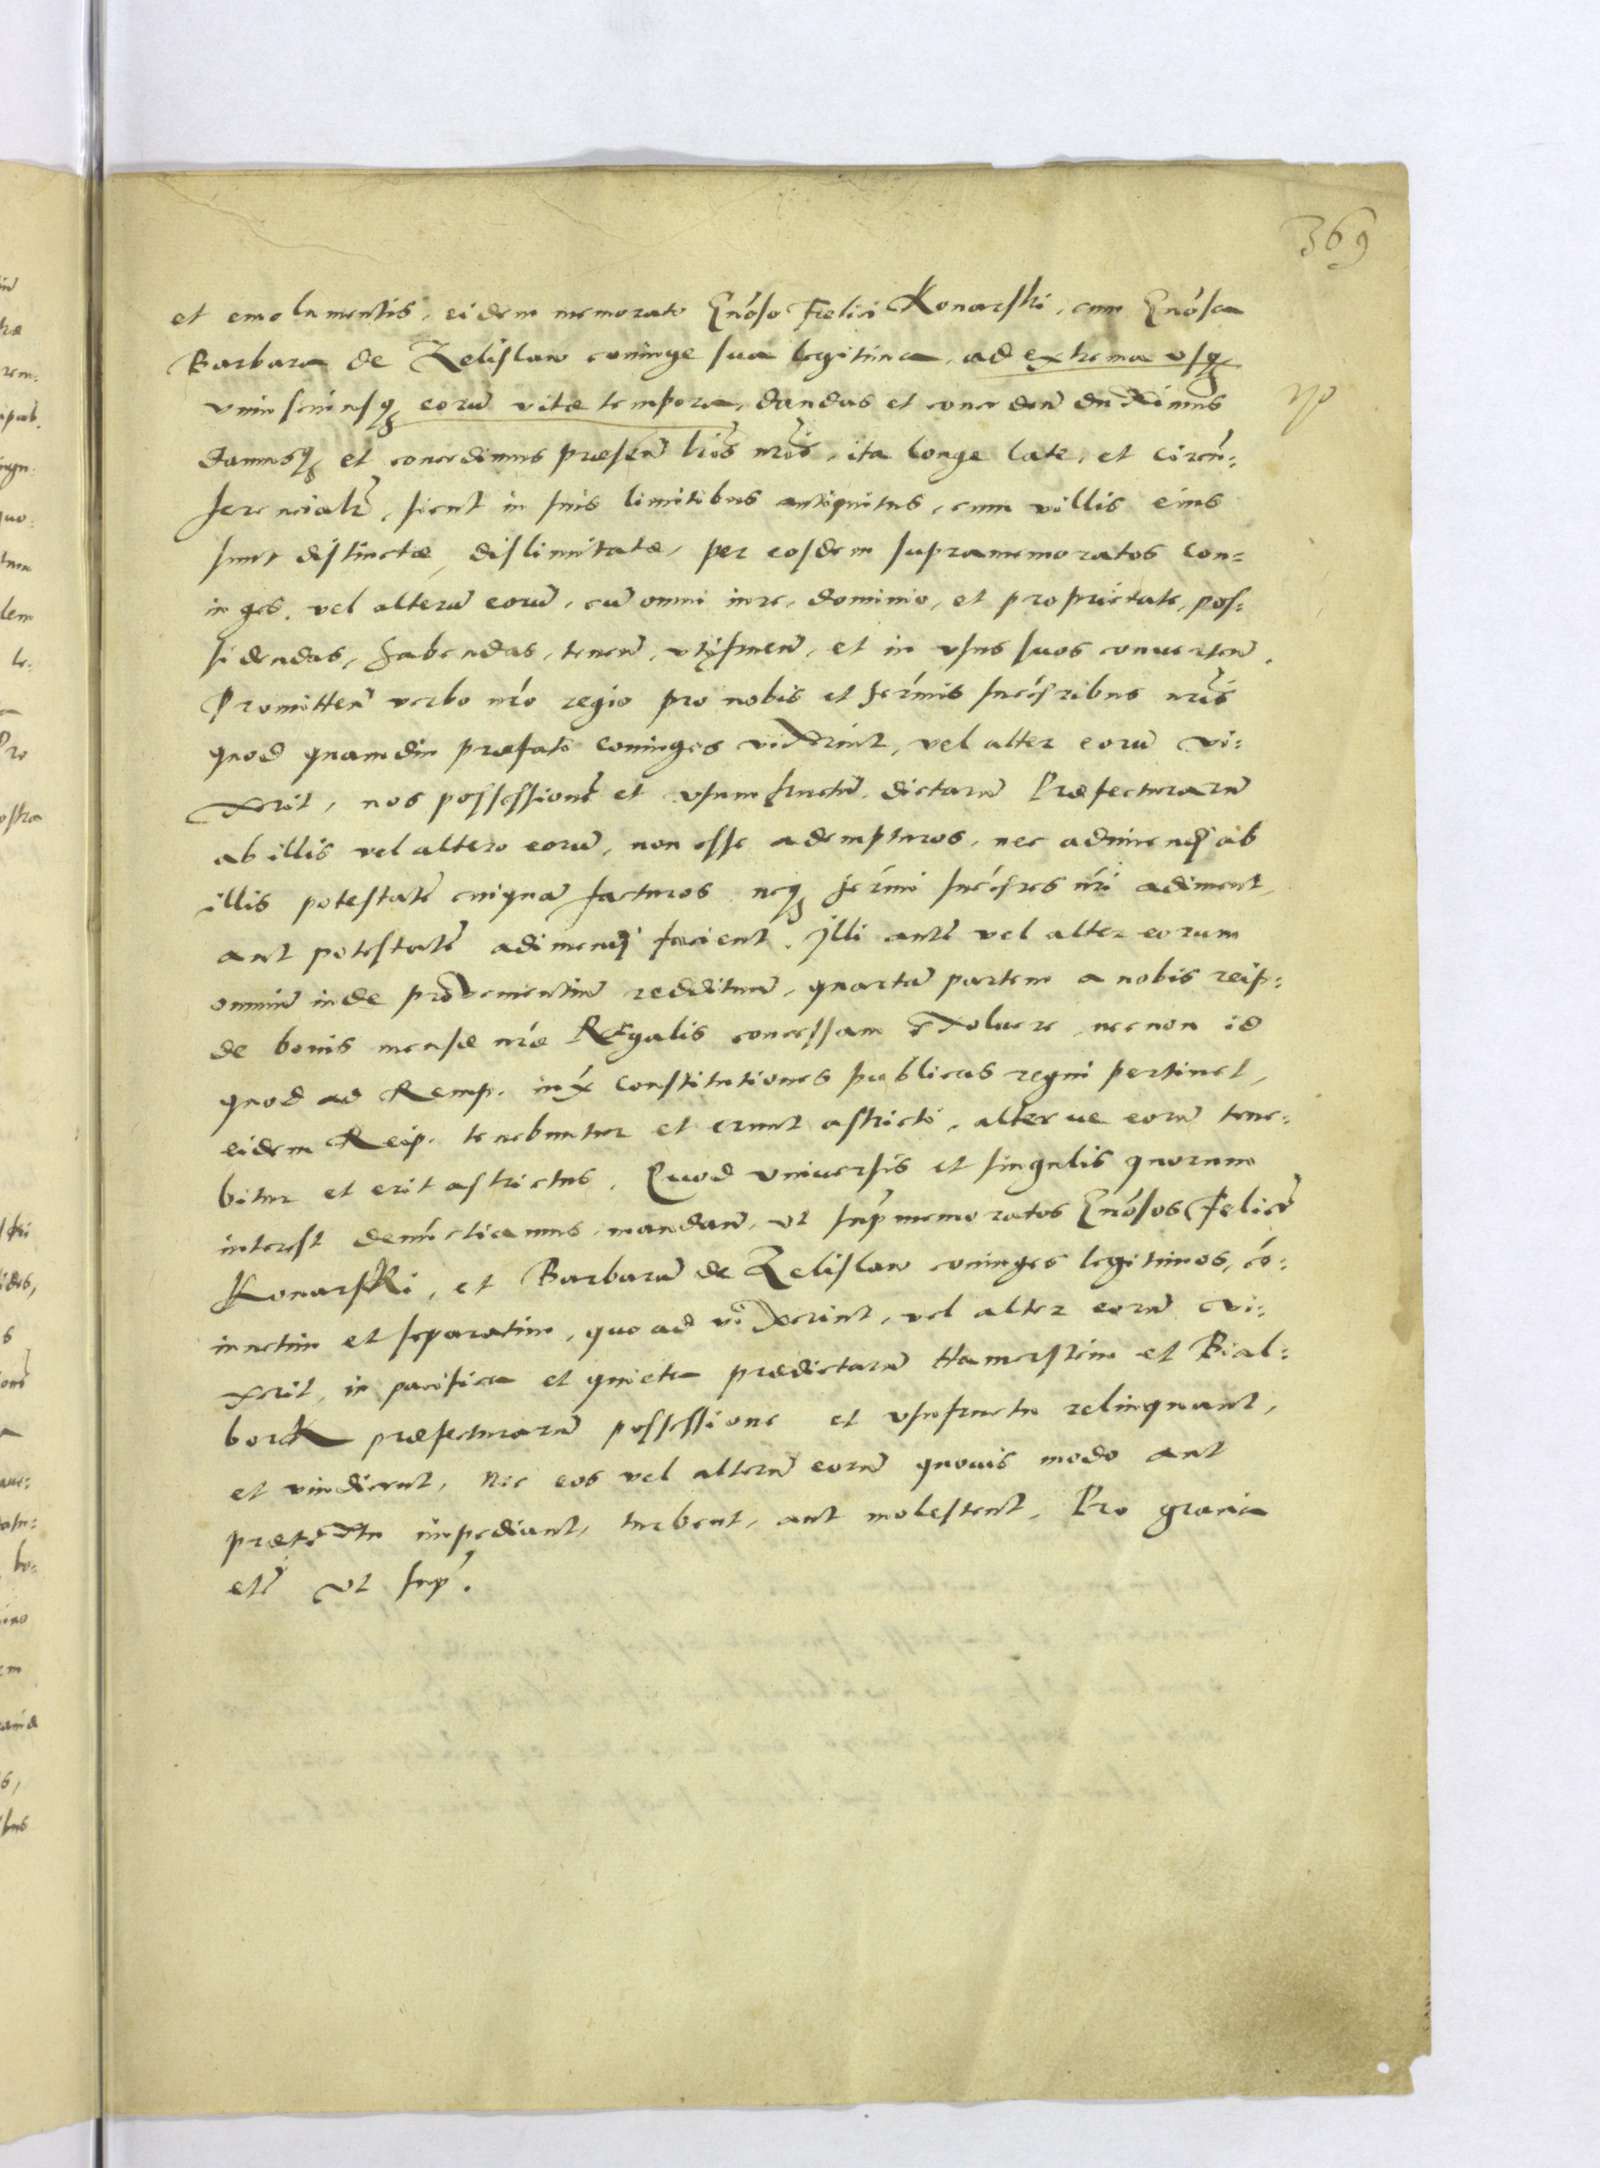 369
et emolumentis, eidem memorato Gnoso Felici Konarski, cum Gnosa
Barbara de Zelislaw coniuge sua legitima, ad extrema usq
vniuscuiusq eorũ vitæ tempora, dandas et conceden duximus
damusq et concedimus præsen lris nris, ita longe late, et circu:
ferencialr, sicut in suis limitibus antiquitus, cum villis eius
sunt distinctæ, dislimitatæ, per eosdem supramemoratos con:
iuges, vel alterũ eorũ, cũ omni iure, dominio, et proprietate, pos:
sidendas, habendas, tenen, vtifruen, et in vsus suos conuerten.
Promitten verbo nro regio pro nobis et sermis succribus nris
quod quamdiu præfati coniuges vixerint, vel alter eorũ vi:
xerit, nos possessionẽ et vsumfructũ dictarũ Præfecturarũ
ab illis vel altero eorũ, non esse adempturos, nec adimendi ab
illis potestatẽ cuiquã facturos neq sermi succres nri adiment,
aut potestatẽ adimendi facient. Illi autẽ vel alter eorum
omniũ inde prouenientiũ reddituũ, quartã partem a nobis reip:
de bonis mensæ nræ Regalis concessam exoluere necnon id
quod ad Remp. iux constitutiones publicas regni pertinet,
eidem Reip. tenebuntur et erunt astricti, alterue eorũ tene:
bitur et erit astrictus. Quod vniuersis et singulis quorum
interest denunctiamus mandan, vt supmemoratos Gnosos Felicẽ
Konarski, et Barbarã de Zelislaw coniuges legitimos, co:
iunctim et separatim, quoad vixerint, vel alter eorũ vi:
xerit, in pacifica et quieta prædictarũ Hamerstein et Bial:
bork præfecturarũ possessione et vsufructu relinquant,
et vindicent, nec eos vel alterũ eorũ quouis modo aut
prætextu impediant, turbent, aut molestent. Pro gratia
etc vt sup.